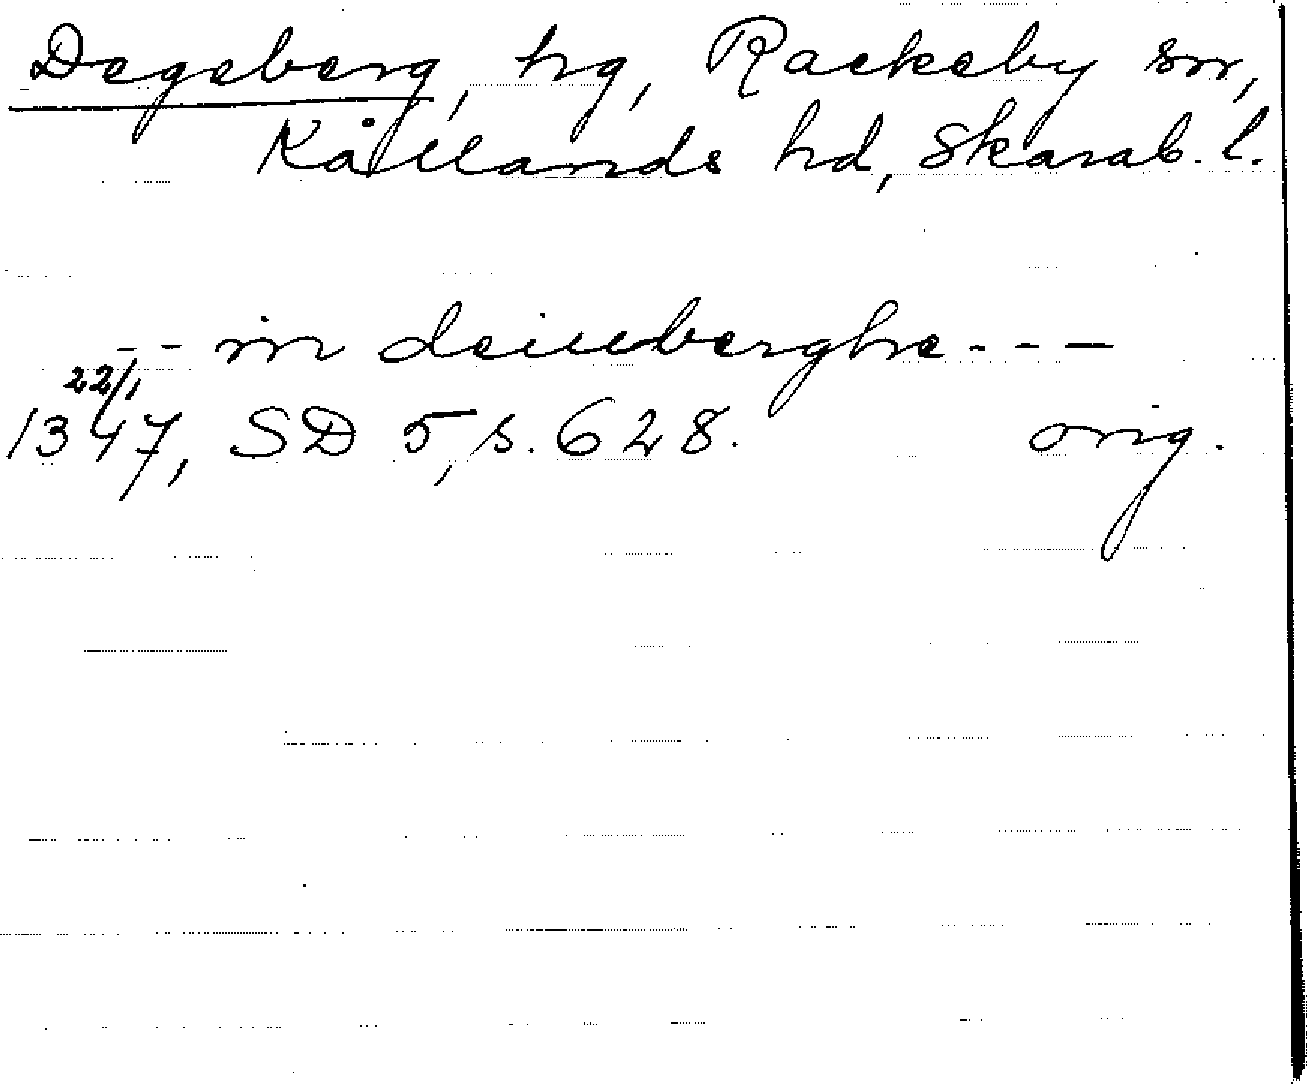 Degeberg, hg, Rackeby sn,
Kållands hd, Skarab. l.
- - in deiuberghe - - -
22/1
1347, SD 5, s. 628. orig.